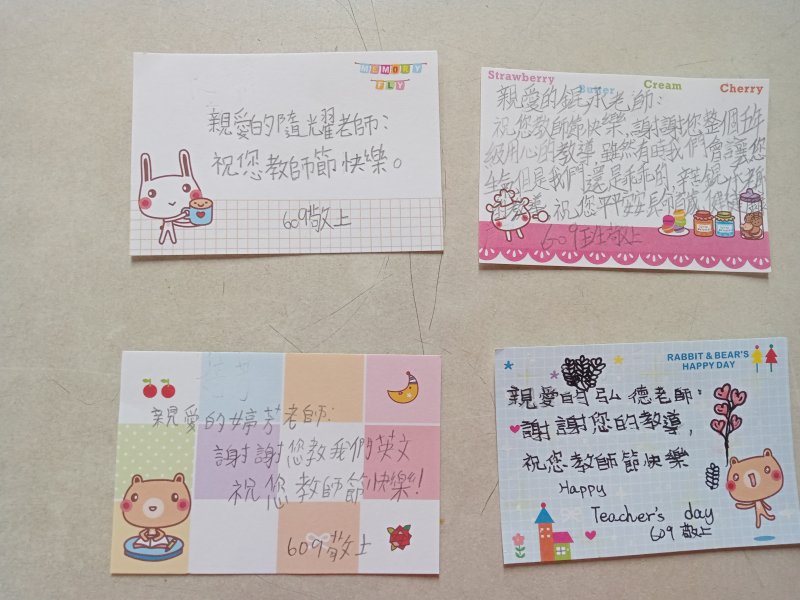 MEMORY
FLY
親愛的隨耀老師:
祝您教師節快樂。
609敬上
Strawberry
Butter
Cream
Cherry
親愛的錕承老師:
祝您教師節快樂,謝謝您整個五年
級用心的教導,雖然有時我們會讓您
生氣但是我們還是乖乖的,
祝您平安
609班敬上
親愛的婷芳老師:
謝謝您教我們英文
祝您教師節快樂!
609敬上
RABBIT & BEAR'S
HAPPY DAY
親愛的弘德老師:
謝謝您的教導,
祝您教師節快樂
Happy
Teacher's day
609敬上